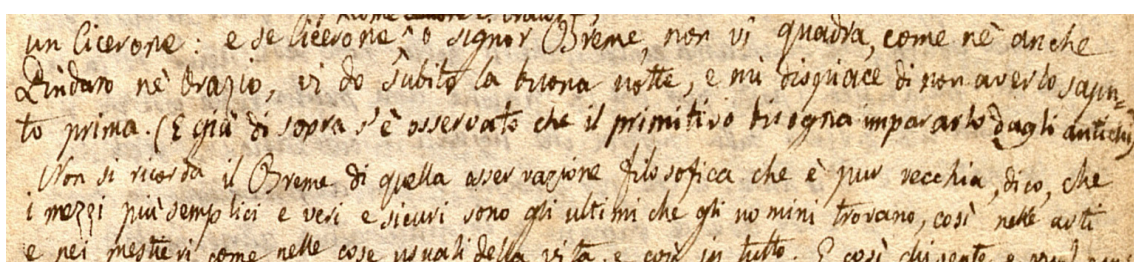 un Cicerone: e se Cicerone o signor Breme, non vi quadra, come nè anche
Pindaro nè Orazio, vi do subito la buona notte, e mi dispiace di non averlo sapu=
to prima. (E già di sopra s'è osservato che il primitivo bisogna impararlo dagli antichi)
Non si ricorda il Breme di quella osservazione filosofica che è pur vecchia, dico, che
i mezzi più semplici e veri e sicuri sono gli ultimi che gli uomini trovano, così nelle arti
e nei mestieri come nelle cose usuali della vita, e così in tutto. E così chi sente e